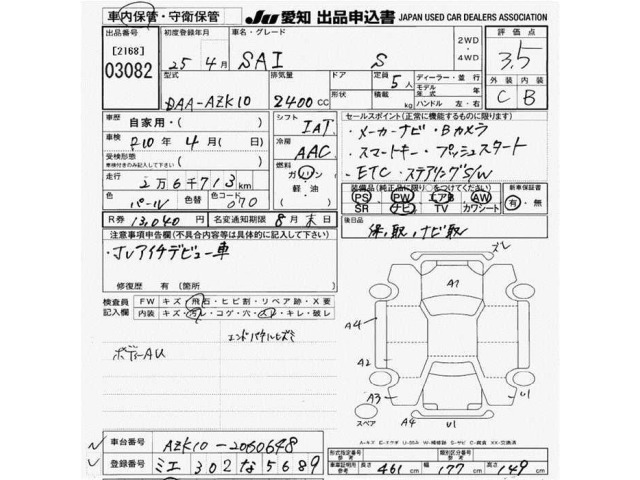 車内保管・守衛保管 JU 愛知 出品申込書 JAPAN USED CAR DEALERS ASSOCIATION
出品番号 [2168] 03082
初度登録年月 25年4月
車名・グレード SAI S
2WD・4WD
評価点 3.5
型式 DAA-AZK10
排気量 2400cc
ドア 形状
定員 5人 積載 kg
ディーラー・並行
モデル年式 年
ハンドル 左・右
外装 C 内装 B
車歴 自家用・( )
車検 R10年4月( 日)
受検形態 車検付きのみ記入して下さい
走行 2万6千713km
色 パール 色替 色コード 070
シフト IAT
冷房 AAC
燃料 ガソリン・軽・油
セールスポイント(正常に機能するものに限ります)
・メーカーナビ・Bカメラ
・スマートキー・プッシュスタート
・ETC・ステアリングS/W
装備品(純正品に限り○をつけてください)
PS PW エアB AW
SR ナビ TV カワシート
新車保証書 有・無
R券 13,040円 名変通知期限 8月末日
後日品 保,取,ナビ取
注意事項申告欄(不具合内容等は具体的に記入して下さい)
・JUアイチデビュー車
修復歴 有(箇所 )
検査員記入欄
FW キズ・飛石・ヒビ割・リペア跡・X要
内装 キズ・汚レ・コゲ・穴・スレ・キレ・破レ
ボディーAU
ズレ
A1
A4
A2
A3
A4
U1
U1
スペア
A-キズ E-エクボ U-凹み W-補修跡 S-サビ C-腐食 XX-交換済
車台番号 AZK10-2060648
登録番号 ミエ 302な5689
形式指定番号 参考
類別区分番号 参考
車車証明用参考 長さ 461cm 幅 177cm 高さ 149cm